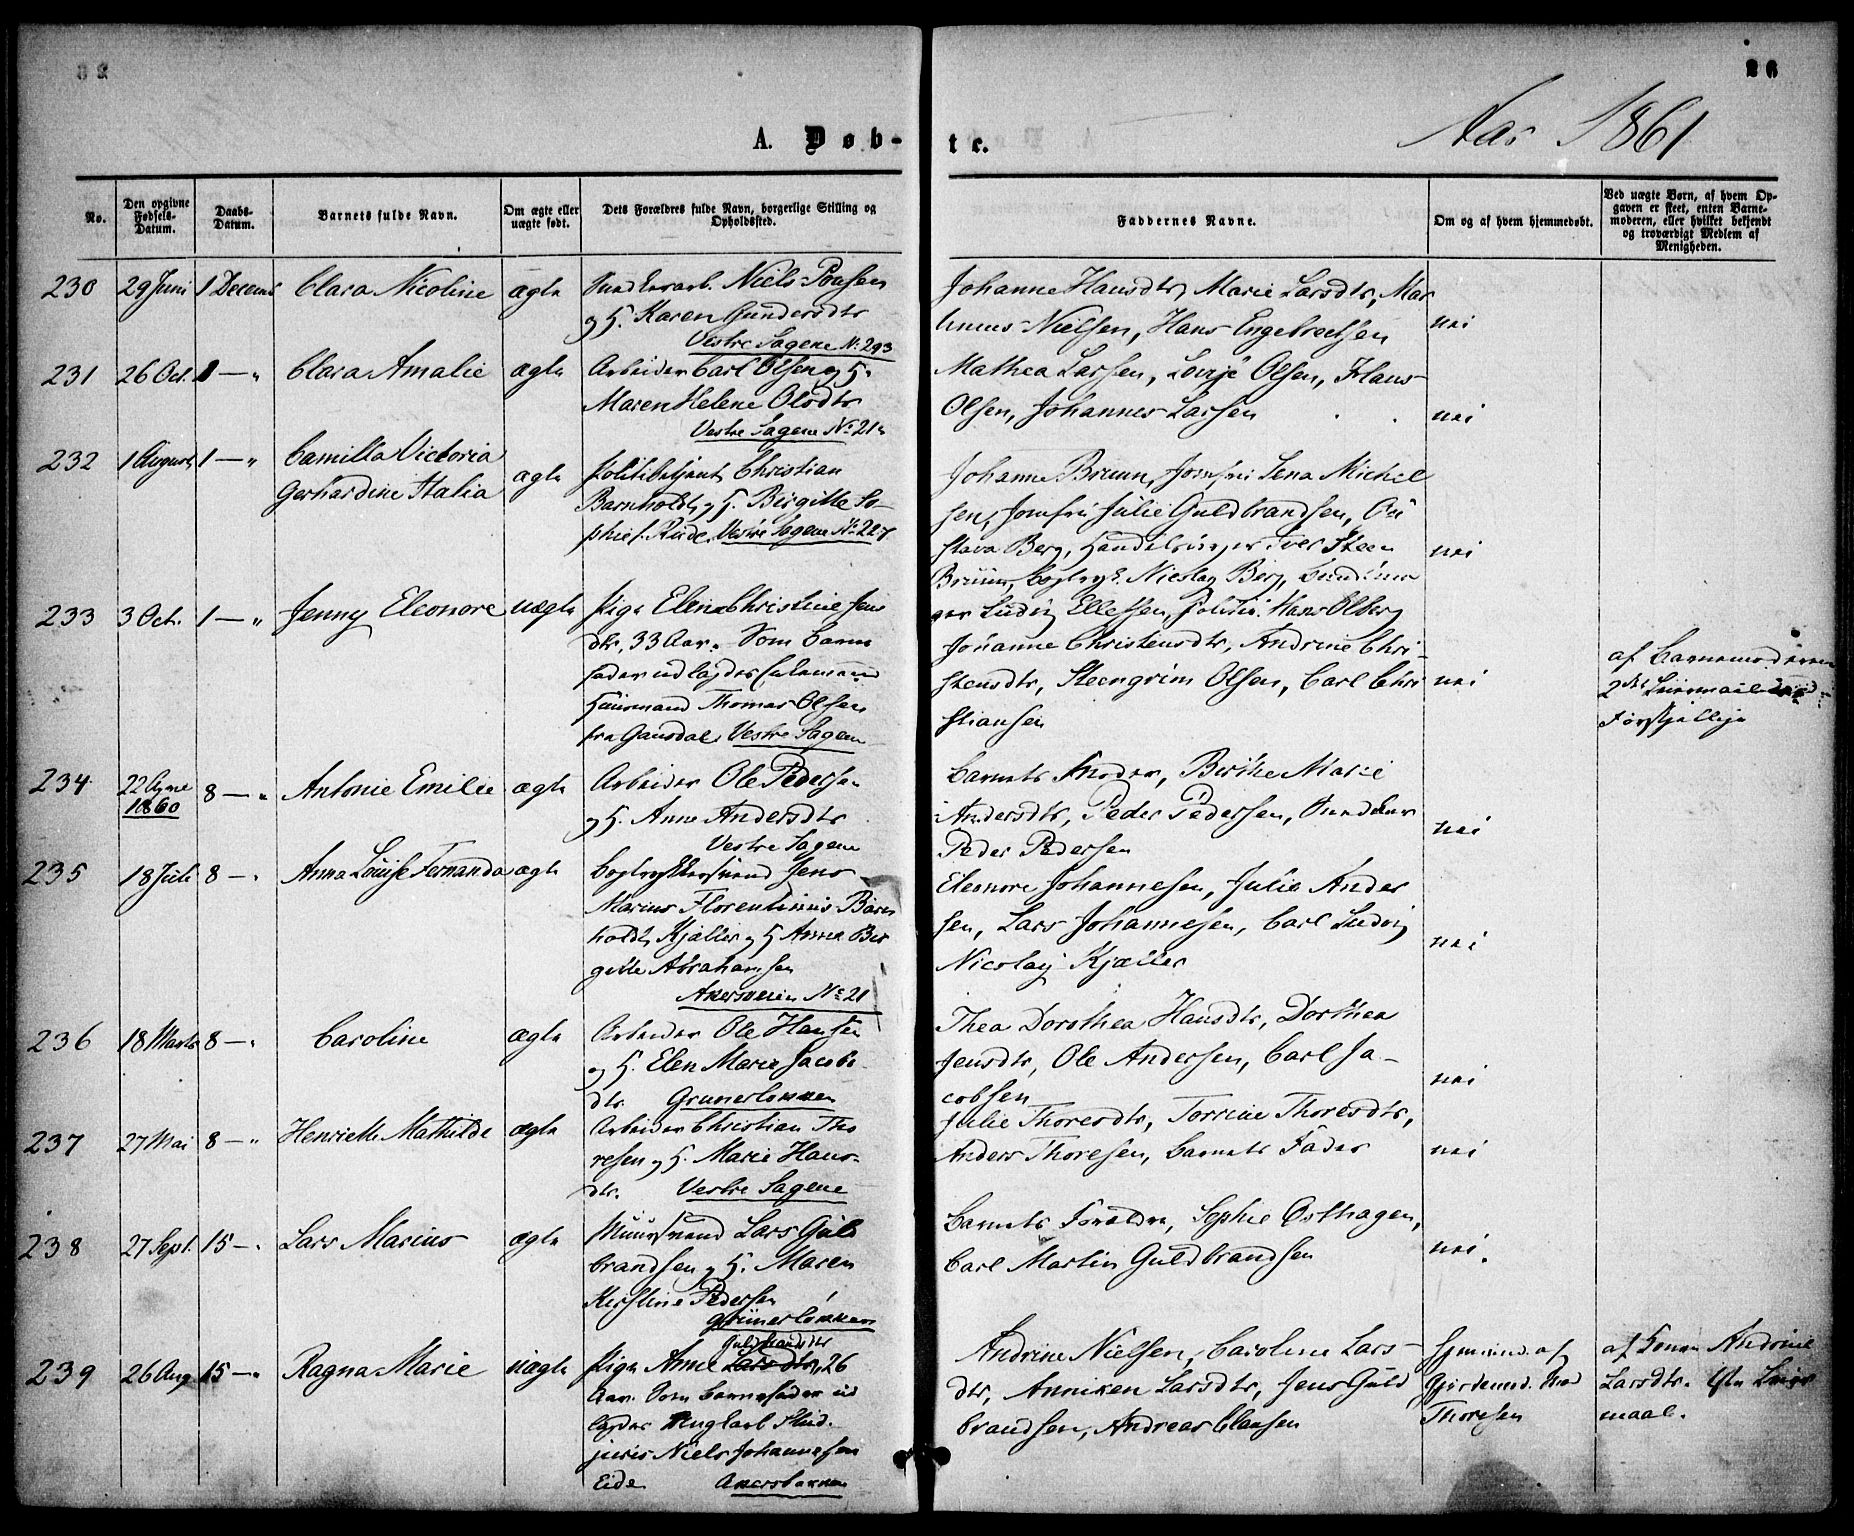 26
A. Døb-te.
Aar 1861
No.
Den opgivne Fødsels-Datum.
Daabs-Datum.
Barnets fulde Navn.
Om ægte eller uægte født.
Dets Forældres fulde Navn, borgerlige Stilling og Opholdssted.
Faddernes Navne.
Om og af hvem hjemmedøbt.
Ved uægte Børn, af hvem Op-
gaven er skeet, enten Barne-
moderen, eller hvilket bekjendt
og troværdigt Medlem af
Menigheden.
230 29 Juni 1 Decemb Clara Nicoline ægte
Niels Poulsen
og H. Karen Gundersdtr
Vestre Sagene No 293
Johanne Hansdtr, Marie Larsdtr, Mar
Nielsen, Hans Engebretsen
nei
231 26 Oct. 1 — " Clara Amalie ægte
Arbeider Carl Olsen og H.
Maren Helene Olsdtr
Vestre Sagene No 21
Mathea Larsen, Lovise Olsen, Hans
Olsen, Johannes Larsen
nei
232 1 August 1 — " Camilla Victoria
Gerhardine Italia
ægte
Politibetjent Christian
Barnholdt, og H. Birgitte So-
phie f. Rude. Vestre Sagene No 227
Johanne Bruun, Jomfru Lena Michel
sen, Jomfru Julie Guldbrandsen, Gu
stava Berg, Iver Steen
Bruun, Bogtryk. Nicolay Berg,
Ludvig Ellefsen, Hans Olberg
nei
233 3 Oct. 1 — " Jenny Eleonore uægte
Pige Elen Christine Jens
dtr, 33 Aar. Som Barne
fader udlagdes
Huusmand Thomas Olsen
fra Gausdal. Vestre Sagene
Johanne Christensdtr, Andrine Chri-
stensdtr, Steengrim Olsen, Carl Chri
stiansen
nei
af Barnemoderen
2det Leiermaal
Forskjellige
234 22 1860 8 — " Antonie Emilie ægte
Arbeider Ole Pedersen
og H. Anne Andersdtr
Vestre Sagene
Barnets Moder, Birthe Marie
Andersdtr, Peder Pedersen,
Peder Pedersen
nei
235 18 Juli 8 — " Anna Louise Fernanda ægte
Bogtrykkersvend Jens
Marius Florentinus Barn
holdt Kjæller og H. Anna Bir
gitte Abrahamsen
Akersveien No 21
Eleonore Johannesen, Julie Ander
sen, Lars Johannesen, Carl Ludvig
Nicolay Kjæller
nei
236 18 Marts 8 — " Caroline ægte
Arbeider Ole Hansen
og H. Elen Marie Jacobs
dtr. Grunerløkken
Thea Dorothea Hansdtr, Dorthea
Jensdtr, Ole Andersen, Carl Ja-
cobsen
nei
237 27 Mai 8 — " Henriette Mathilde ægte
Arbeider Christian Tho
resen og H. Marie Hans-
dtr. Vestre Sagene
Julie Thoresdtr, Torrine Thoresdtr,
Anders Thoresen, Barnets Fader
nei
238 27 Sept. 15 — " Lars Marius ægte
Muursvend Lars Gul
brandsen og H. Maren
Kirstine Pedersen
Grünerløkken
Barnets Forældre, Sophie Østhagen,
Carl Martin Guldbrandsen
nei.
239 26 Aug 15 — " Ragna Marie uægte
Guldbrandsdtr
Pige Anne Larsdtr, 26
Aar. Som Barnefader ud
lagdes Ungkarl Stud.
juris Niels Johannesen
Eide Akersbakken
Andrine Nielsen, Caroline Lars-
dtr, Anniken Larsdtr, Jens Guld
brandsen, Andreas Clausen
Hjemmed. af
Gjordemod. Mad
Thoresen
af Konen Andrine
Larsdtr. 1ste Leier
maal.